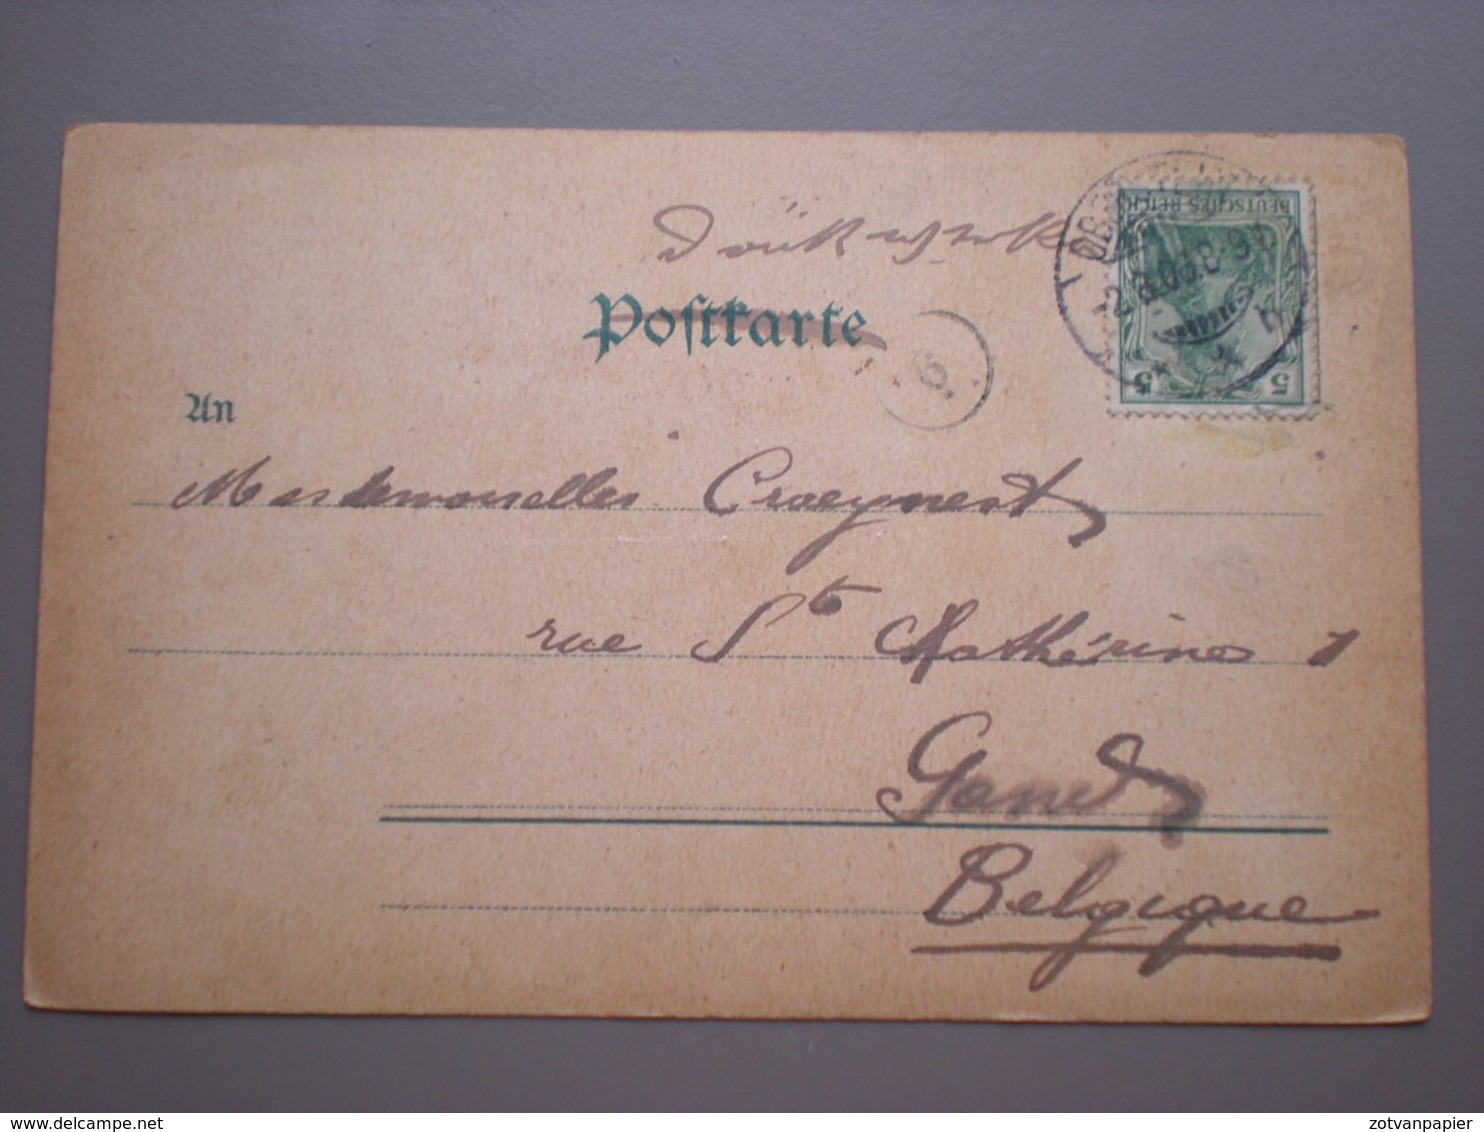 Drucksache
Postkarte
DEUTSCHES REICH
5 5
6
An
Mesdemoiselles Craeynest
rue Ste Cathérine 1
Gand
Belgique
delcampe.net
zotvanpapier